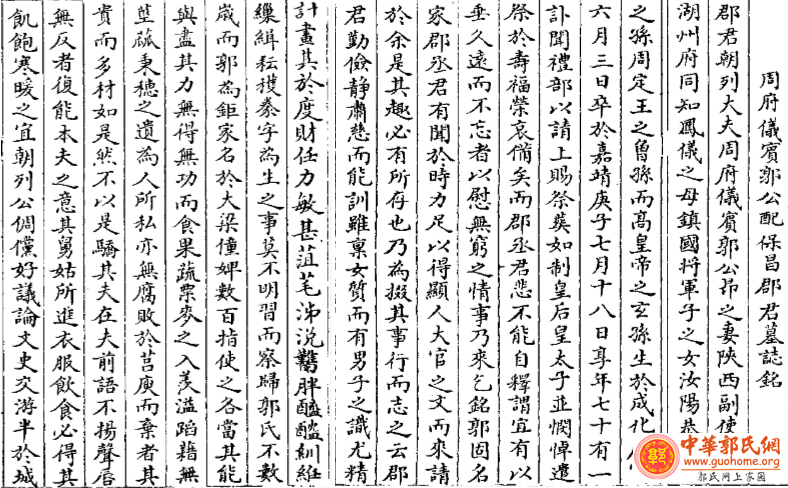 周府儀賓郭公配保昌郡君墓誌銘
郡君朝列大夫周府儀賓郭公昂之妻陝西副使
湖州府同知鳳儀之母鎮國將軍子之女汝陽恭
之孫周定王之曾孫而高皇帝之玄孫生於成化
六月三日卒於嘉靖庚子七月十八日享年七十有一
訃聞禮部以請上賜祭葬如制皇后皇太子並憫悼遣
祭於壽福榮哀備矣而郡丞君悲不能自釋謂宜有以
垂久遠而不忘者以慰無窮之情事乃來乞銘郭固名
家郡丞君有聞於時力足以得顯人大官之文而來請
於余是其趣必有所存也乃為掇其事行而志之云郡
君勤儉靜肅慈而能訓雖稟女質而有男子之識尤精
計畫其於度財任力敏甚菹芼涗胖醯醢紃絍
緝耘穫豢字為生之事莫不明習而察歸郭氏不數
歲而郭為鉅家名於大梁僮婢數百指使之各當其能
與盡其力無得無功而食果蔬粟麥之入羨溢蹈藉無
莖蓏秉穗之遺為人所私亦無腐敗於莒庾而棄者其
貴而多材如是然不以是驕其夫在夫前語不揚聲唇
無反者復能本夫之意其舅姑所進衣服飲食必得其
飢飽寒暖之宜朝列公倜儻好議論文史交游半於城
中華郭氏網
www.guohome.org
郭氏网上家園